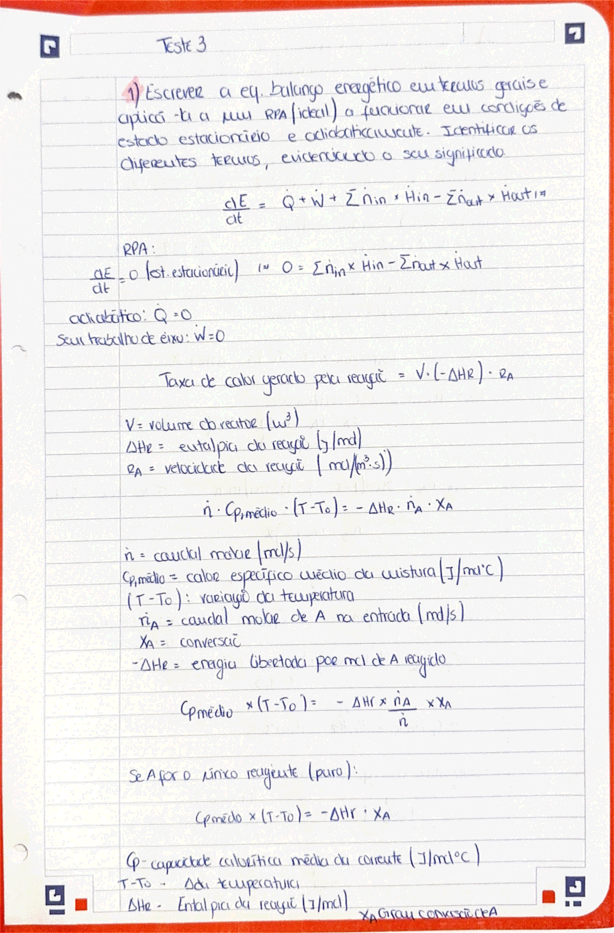 Teste 3
1) Escrever a eq. balanço energético em termos gerais e
aplicá-la a um RPA (ideal) a funcionar em condições de
estado estacionário e adiabaticamente. Identificar os
diferentes termos, evidenciando o seu significado
dE/dt = Q̇ + Ẇ + Σṅin × Ḣin - Σṅout × Ḣout (=)
RPA:
dE/dt = 0 (est. estacionário) (=) 0 = Σṅin × Ḣin - Σṅout × Ḣout
adiabático: Q̇ = 0
Sem trabalho de eixo: Ẇ = 0
Taxa de calor gerado pela reação = V·(-ΔHR)·RA
V = volume do reator (m³)
ΔHR = entalpia da reação (J/mol)
RA = velocidade da reação (mol/(m³·s))
ṅ · Cp,médio · (T-T0) = -ΔHR · ṅA · XA
ṅ = caudal molar (mol/s)
Cp,médio = calor específico médio da mistura (J/mol°C)
(T-T0): variação da temperatura
ṅA = caudal molar de A na entrada (mol/s)
XA = conversão
-ΔHR = energia libertada por mol de A reagido
Cpmédio × (T-T0) = -ΔHr × ṅA/ṅ × XA
Se A for o único reagente (puro):
Cpmédio × (T-T0) = -ΔHr · XA
Cp - capacidade calorífica média da corrente (J/mol°C)
T-T0 - Δda temperatura
ΔHR - Entalpia da reação (J/mol)
XA Grau conversão de A